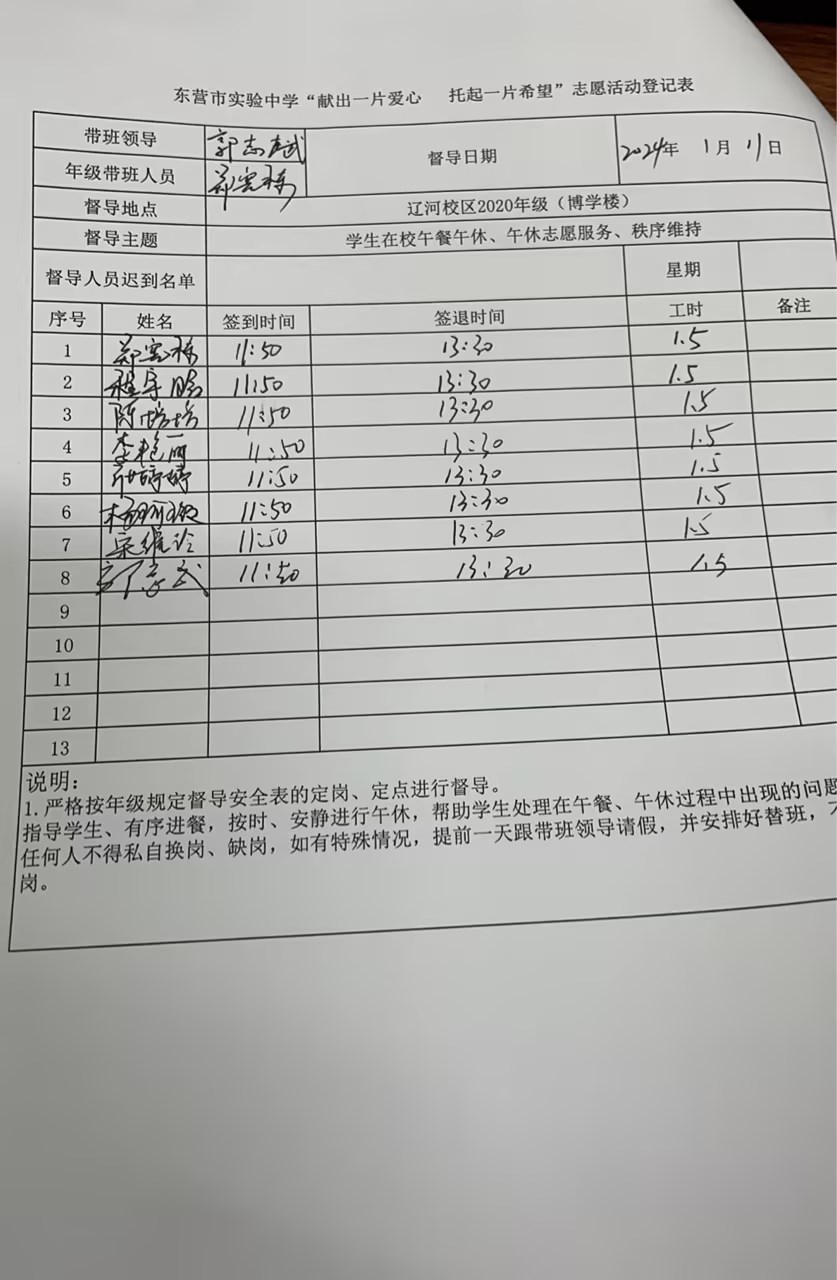 东营市实验中学“献出一片爱心 托起一片希望”志愿活动登记表
带班领导 郭志武 督导日期 2024年 1月 11日
年级带班人员
督导地点 辽河校区2020年级（博学楼）
督导主题 学生在校午餐午休、午休志愿服务、秩序维持
督导人员迟到名单 星期
序号 姓名 签到时间 签退时间 工时 备注
1 11:50 13:30 1.5
2 程宇鹏 11:50 13:30 1.5
3 陈培培 11:50 13:30 1.5
4 李艳丽 11:50 13:30 1.5
5 婷婷 11:50 13:30 1.5
6 杨 11:50 13:30 1.5
7 宋维玲 11:50 13:30 1.5
8 11:50 13:30 1.5
9
10
11
12
13
说明：
1.严格按年级规定督导安全表的定岗、定点进行督导。
指导学生、有序进餐，按时、安静进行午休，帮助学生处理在午餐、午休过程中出现的问题
任何人不得私自换岗、缺岗，如有特殊情况，提前一天跟带班领导请假，并安排好替班，
岗。